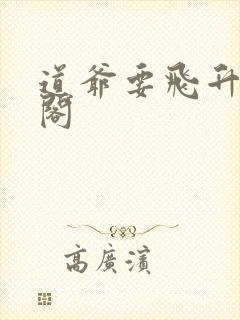 道爺要飛升
閣
高廣濱